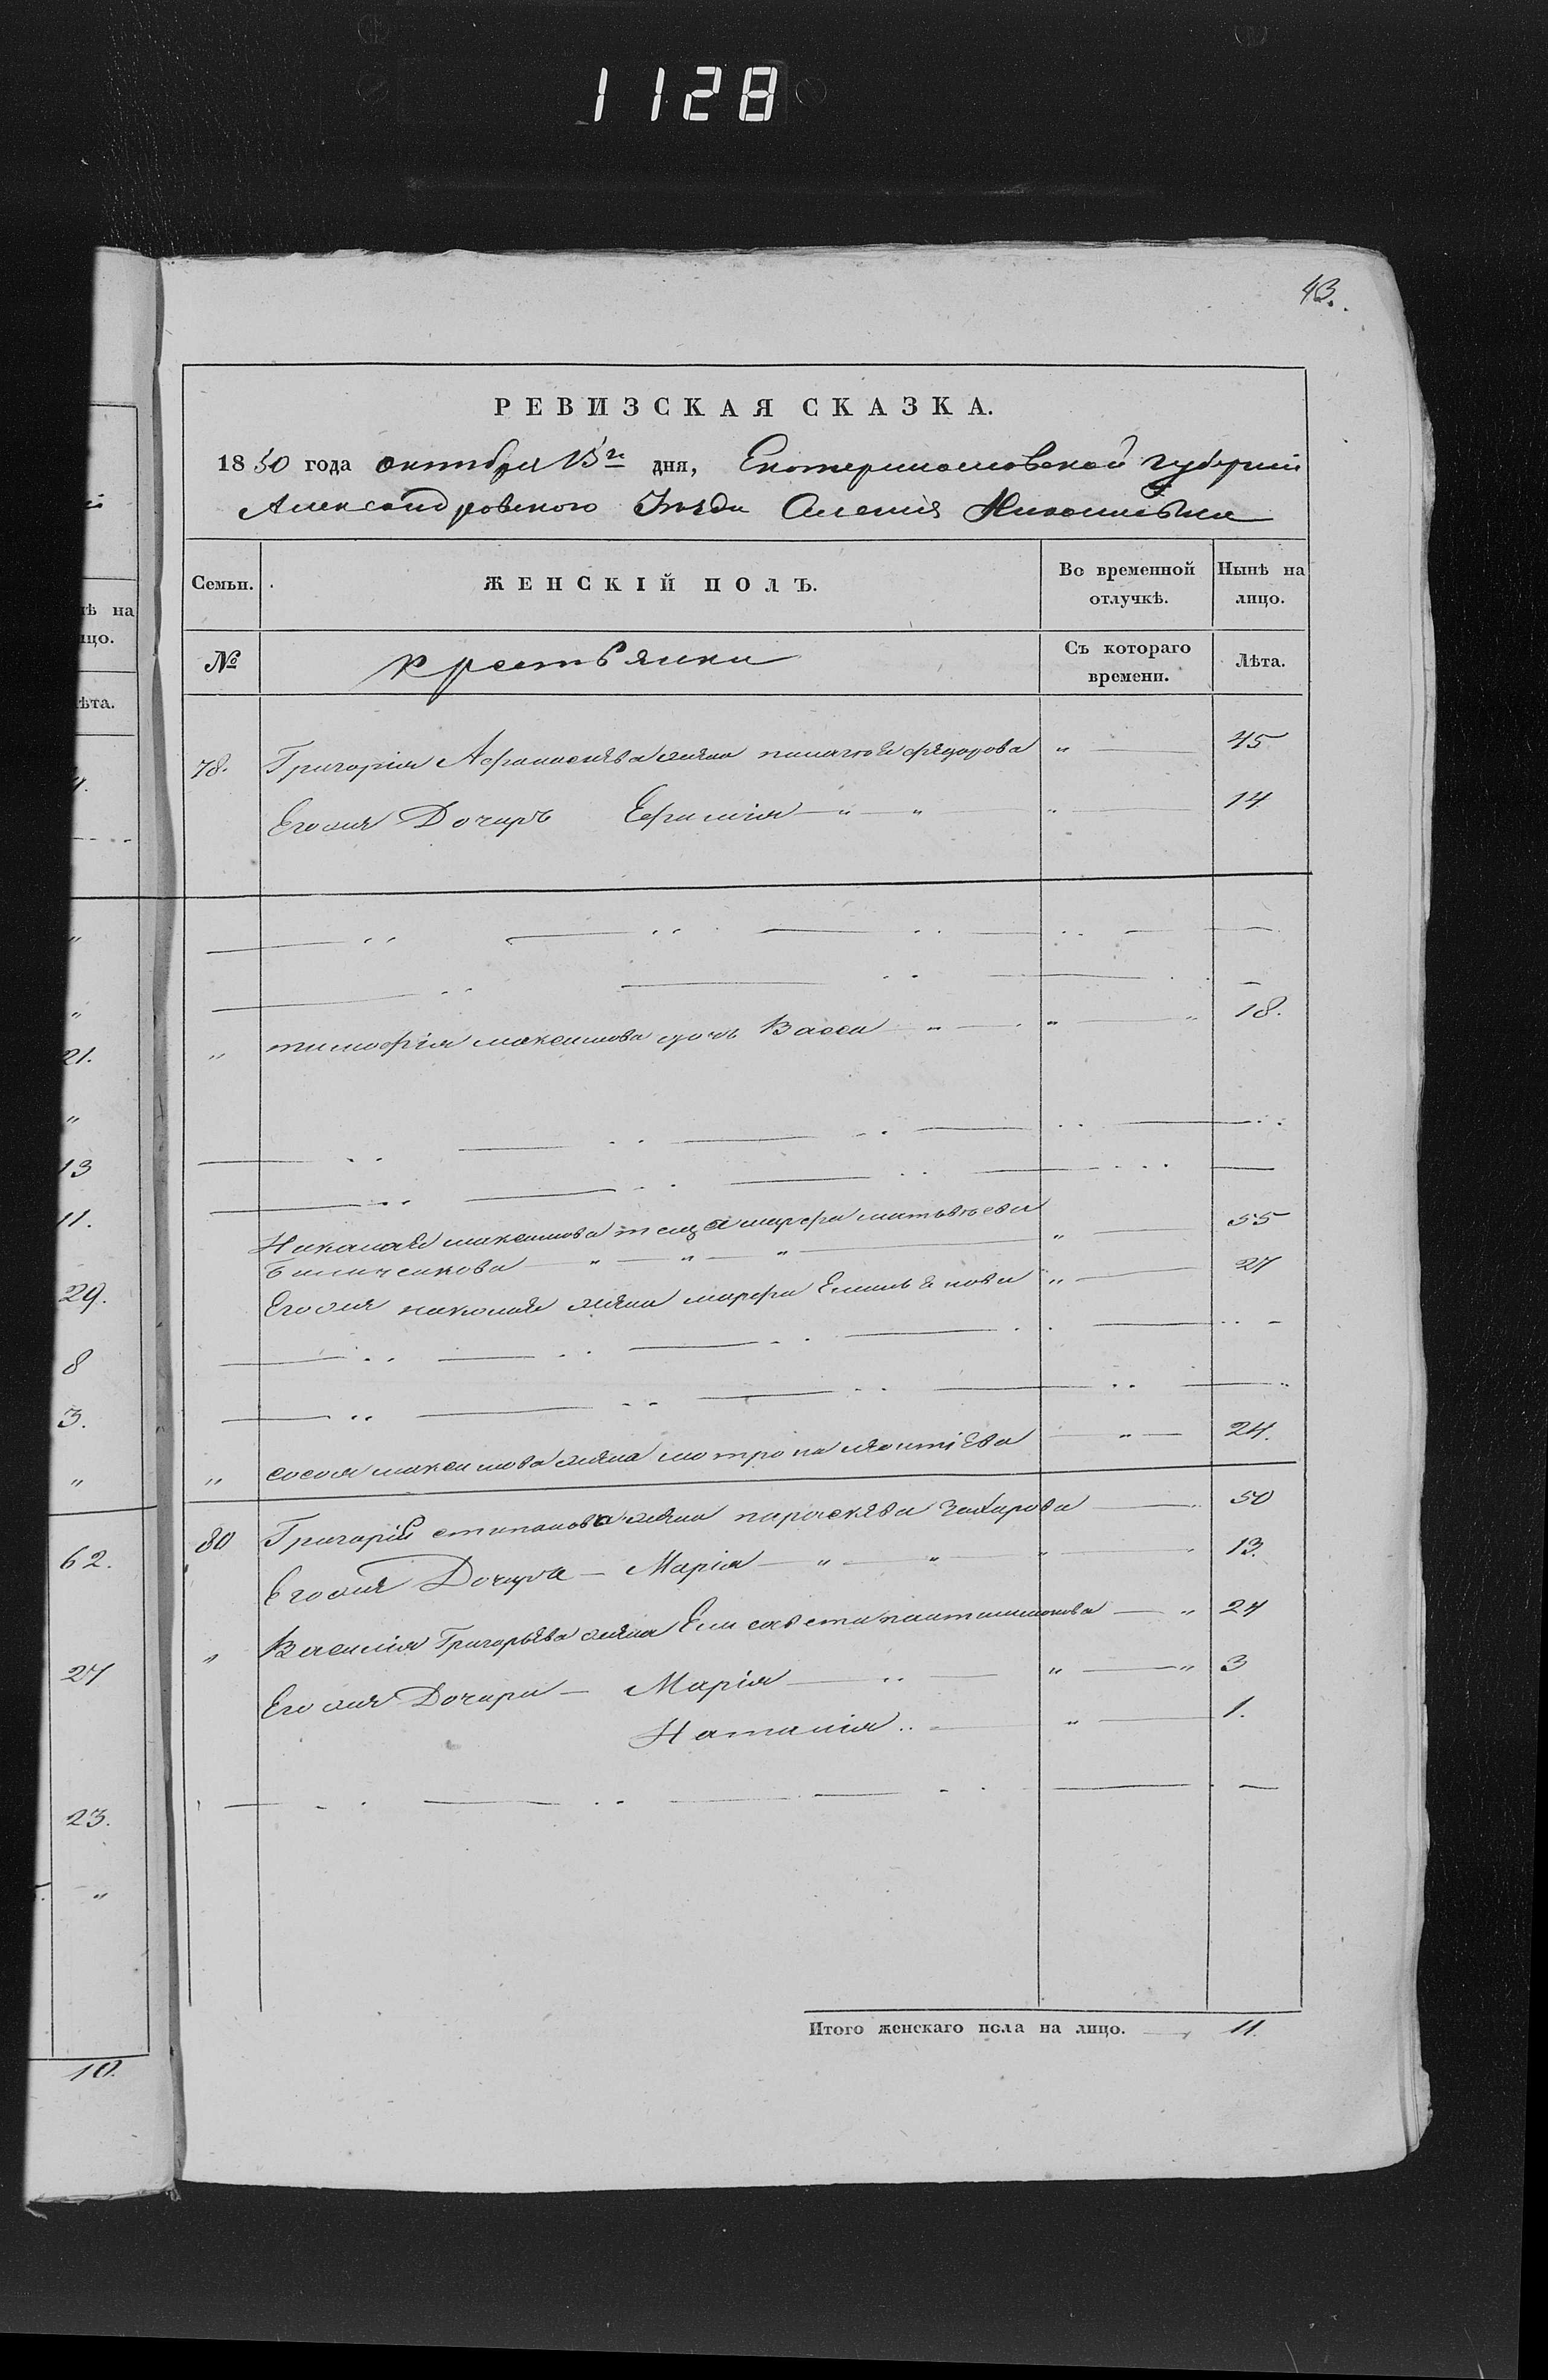 1128
43.
РЕВИЗСКАЯ СКАЗКА.
1850 года октября 15го дня, Екатеринославской губернии
Александровского Уезда Николаевки
Семьи. ЖЕНСКІЙ ПОЛЪ. Во временной отлучкѣ. Нынѣ на лицо.
№ крестьянки Съ котораго времени. Лѣта.
78. Григория Афанасиева жена пелагея федорова " 45
Его же Дочерь Ефимия " " " 14
" тимофея максимова дочь Васса " " " 18.
Николая максимова теща марфа матвеева
" " " " 55
Его же николая жена марфа " 27
" сосоя максимова жена мотрона " 24.
80 Григорий степанова жена параскева захарова 50
Его же Дочери Мария " " " 13.
" Василия Григорьева жена Елисавета пантилимонова " 24
Его же Дочери Мария " " " 3
Наталия " " 1.
Итого женскаго пола на лицо. 11.
ѣ на
цо.
ѣта.
"
"
21.
"
13
11.
29.
8
3.
"
62.
27
23.
"
10.